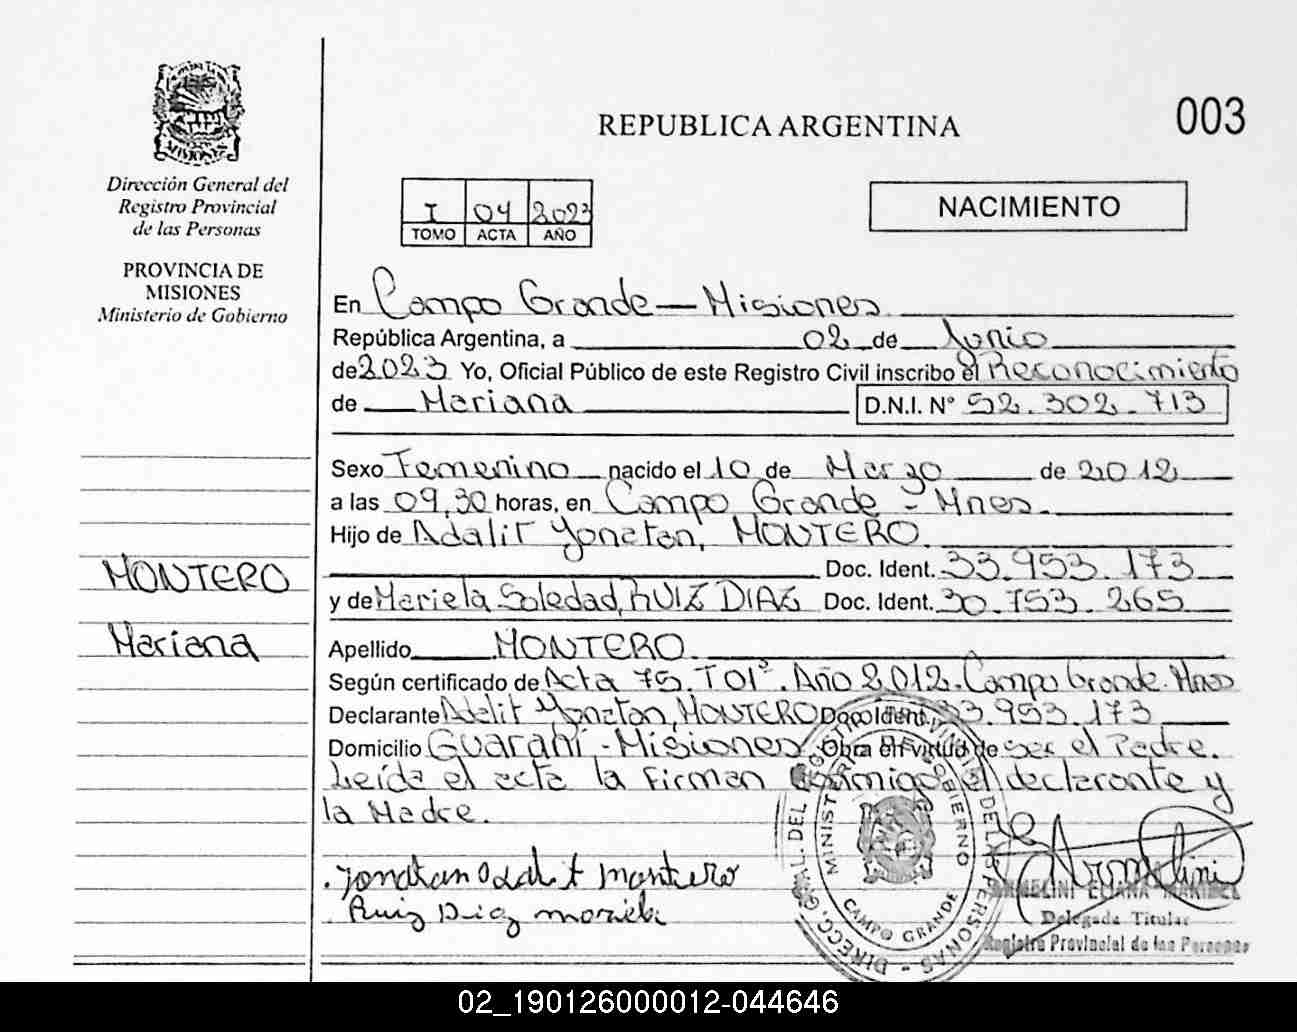 MISIONES
Dirección General del
Registro Provincial
de las Personas
PROVINCIA DE
MISIONES
Ministerio de Gobierno
MONTERO
Mariana
REPUBLICA ARGENTINA
003
I 04 2023
TOMO ACTA AÑO
NACIMIENTO
En Campo Grande - Misiones
República Argentina, a 02 de Junio
de 2023 Yo, Oficial Público de este Registro Civil inscribo el Reconocimiento
de Mariana D.N.I. N° 52.302.713
Sexo Femenino nacido el 10 de Marzo de 2012
a las 09,30 horas, en Campo Grande - Mnes.
Hijo de Adalit Yonatan, MONTERO.
Doc. Ident. 33.953.173
y de Mariela Soledad, RUIZ DIAZ Doc. Ident. 30.753.265
Apellido MONTERO.
Según certificado de Acta 75. T01°. Año 2012. Campo Grande. Mnes
Declarante Adalit Yonatan, MONTERO Doc. Ident. 33.953.173
Domicilio Guaraní - Misiones. Obra en virtud de ser el Padre.
Leída el acta la firman conmigo el declarante y
la Madre.
Jonatan Adalit Montero
Ruiz Diaz mariela
DIRECC. GRAL. DEL REGISTRO PROVINCIAL DE LAS PERSONAS
MINISTERIO DE GOBIERNO
CAMPO GRANDE
ARMELINI ELIANA MARIBEL
Delegada Titular
Registro Provincial de las Personas
02_190126000012-044646